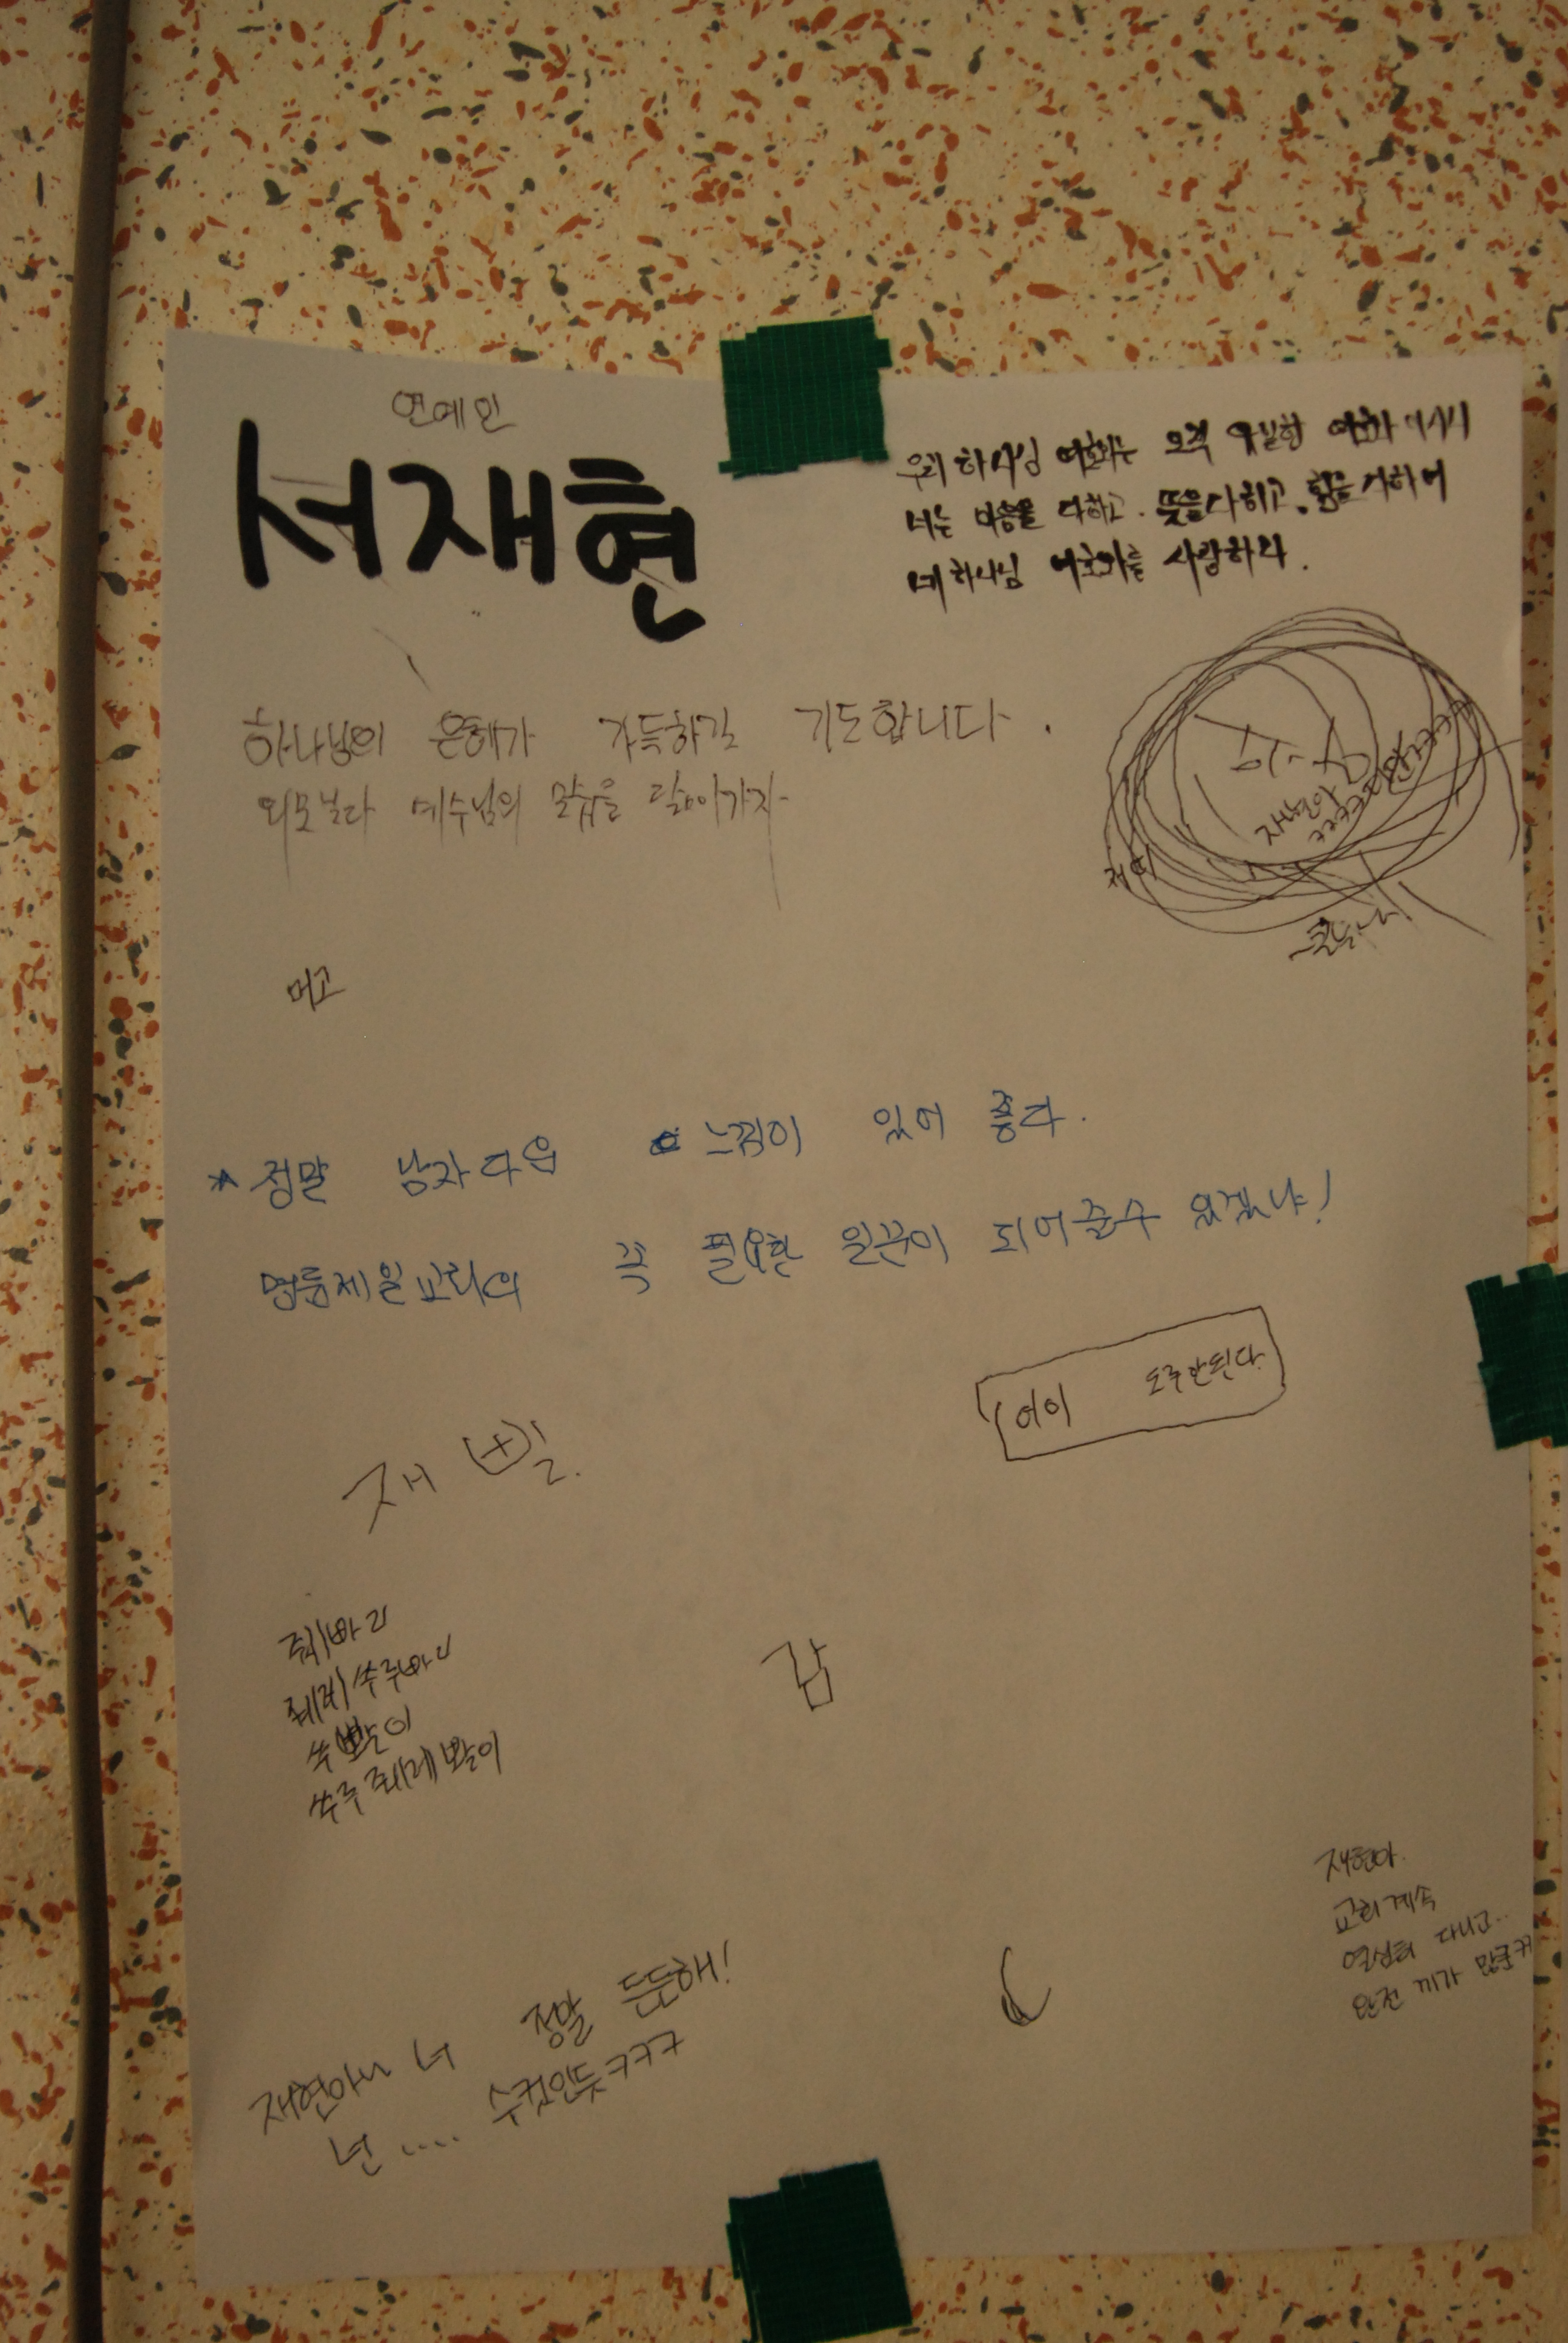 연예인
서재현
우리 하나님 여호와는 오직 유일한 여호와 이시니
너는 마음을 다하고. 뜻을다하고. 힘을 다하여
네 하나님 여호와를 사랑하라.
하나님의 은혜가 가득하길 기도합니다.
외모보다 예수님의 모습을 닮아가자
재현아
머고
* 정말 남자다운 느낌이 있어 좋다.
명륜제일교회의 꼭 필요한 일꾼이 되어줄수 있겠냐!
어이 도주안된다.
재빨.
갑
재현아
교회계속
열심히 다니고..
완전 끼가
재현아 너 정말 든든해!
넌 .... 수컷인듯ㅋㅋㅋ